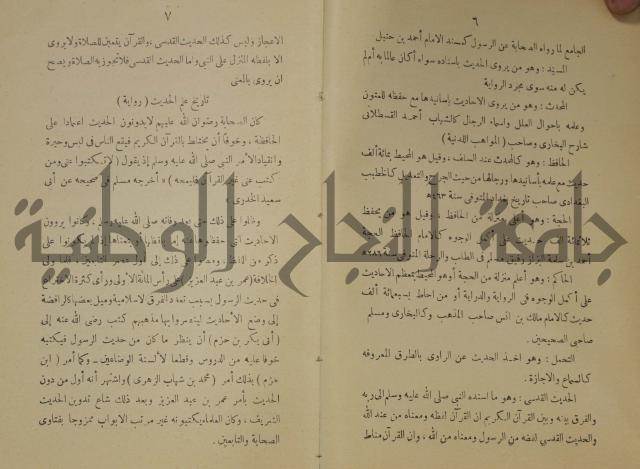 ٦
الجامع لما رواه الصحابة عن الرسول كمسند الامام أحمد بن حنبل
المسند : وهو من يروى الحديث باسناده سواء أكان عالما به أم لم
يكن له منه سوى مجرد الرواية
المحدث : وهو من يروى الاحاديث بأسانيدها مع حفظه للمتون
وعلمه باحوال العلل واسماء الرجال كالشهاب أحمد القسطلانى
شارح البخارى وصاحب ( المواهب اللدنية )
الحافظ : وهو كالمحدث عند السلف ، وقيل هو المحيط بمائة ألف
حديث مع علمه بأسانيدها ورجالها من حيث الجرح والتعديل كالخطيب
البغدادى صاحب تاريخ بغداد المتوفى سنة ٤٦٣ ه
الحجة : وهو أعلى منزلة من الحافظ ، وقيل هو من يحفظ
ثلاثمائة ألف حديث على أكمل الوجوه كالامام الحافظ الحجة
الحاكم : وهو أعلم منزلة من الحجة أو هو المحيط بمعظم الاحاديث
على أكمل الوجوه فى الرواية والدراية أو من احاط بسبعمائة ألف
حديث كالامام مالك بن انس صاحب المذهب وكالبخارى ومسلم
صاحبى الصحيحين .
التحمل : وهو اخذ الحديث عن الراوى بالطرق المعروفه
كالسماع والاجازة .
الحديث القدسى : وهو ما اسنده النبى صلى الله عليه وسلم الى ربه
والفرق بينه وبين القرآن الكريم ان القرآن لفظه ومعناه من عند الله
والحديث القدسى لفظه من الرسول ومعناه من الله ، وان القرآن مناط
٧
الاعجاز وليس كذلك الحديث القدسى ، والقرآن يتعين للصلاة ولا يروى
الا بلفظه المنزل على النبى واما الحديث القدسى فلا تجوز به الصلاة ويصح
ان يروى بالمعنى
تاريخ علم الحديث ( رواية )
كان الصحابة رضوان الله عليهم لا يدونون الحديث اعتمادا على
الحافظة ، وخوفا أن يختلط بالقرآن الكريم فيقع الناس فى لبس وحيرة
وانقيادا لأمر النبى صلى الله عليه وسلم إذ يقول ( لا تكتبوا عنى ومن
كتب عنى غير القرآن فليمحه ) » أخرجه مسلم فى صحيحه عن أبى
سعيد الخدرى »
وظلوا على ذلك حتى بعد وفاته صلى الله عليه وسلم ، وكانوا يروون
الخلافة ( عمر بن عبد العزيز ) على رأس المائة الاولى ورأى كثرة الاختراع
فى حديث الرسول بسبب تعدد الفرق الاسلامية وميل بعضها كالرافضة
إلى وضع الأحاديث لينصروا بها مذهبهم كتب رضى الله عنه إلى
( أبى بكر بن حزم ) أن ينظر ما كان من حديث الرسول فيكتبه
خوفا عليه من الدروس وقطعا لألسنة الوضاعين ـ وكما أمر ( ابن
حزم ) بذلك أمر ( محمد بن شهاب الزهرى ) واشتهر أنه أول من دون
الحديث بأمر عمر بن عبد العزيز وبعد ذلك شاع تدوين الحديث
الشريف ، وكان العلماء يكتبونه غير مرتب الابواب ممزوجا بفتاوى
الصحابة والتابعين .
جامعة النجاح الوطنية